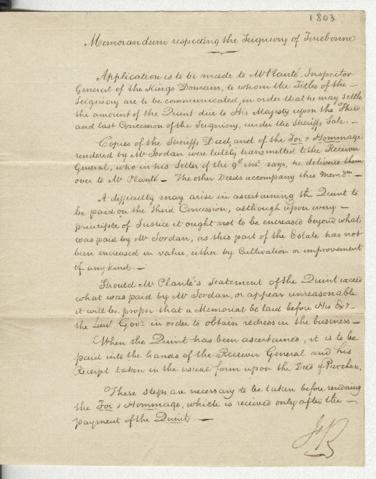 1803
Memorandum respecting the Seigniory of Terrebonne
Application is to be made to Mr Planté, Inspector
General of the Kings Domain, to whom the Titles of the
Seigniory are to be communicated, in order that he may settle
the amount of the Quint due to His Majesty upon the Third
and last Concession of the Seigniory, under the Sheriffs Sale.
Copies of the Sheriffs Deed, and of the Foi & Hommage
rendered by Mr Jordan were lately transmitted to the Receiver
General, who in his Letter of the 9th inst. says, he delivered them
over to Mr Planté. — The other Deeds accompany this Mem.
A difficulty may arise in ascertaining the Quint to
be paid on the Third Concession, although upon every
principle of Justice it ought not to be increased beyond what
was paid by Mr Jordan, as this part of the Estate has not
been increased in value, either by Cultivation or improvement
of any kind. —
Should Mr Plante's Statement of the Quint exceed
what was paid by Mr Jordan, or appear unreasonable
it will be proper that a Memorial be laid before His Exy
the Lieut Govr in order to obtain redress in the business —
When the Quint has been ascertained, it is to be
paid into the hands of the Receiver General and his
Receipt taken in the usual form upon the Deed of Purchase.
These steps are necessary to be taken before rendering
the Foi & Hommage, which is received only after the
payment of the Quint —